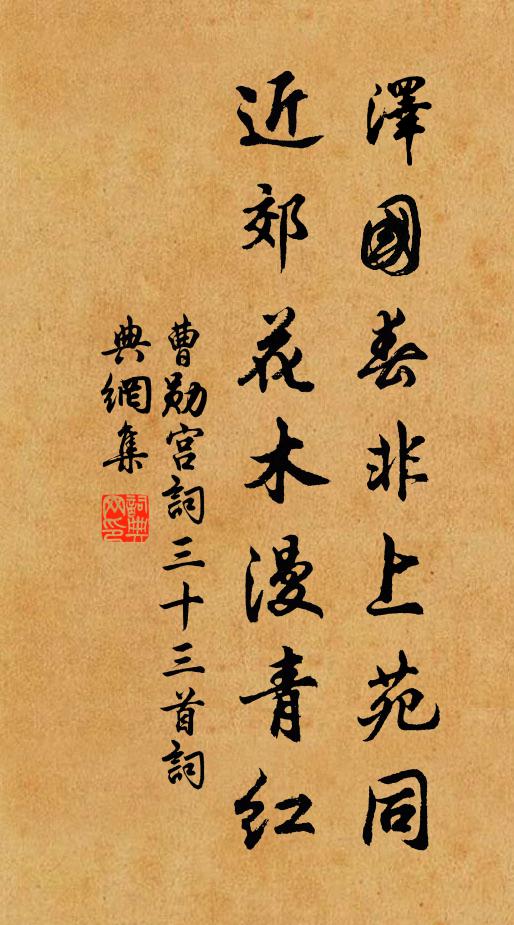 澤國春非上苑同
近郊花木漫青紅
曹勛宮詞三十三首詞
典網集
詞典
網印